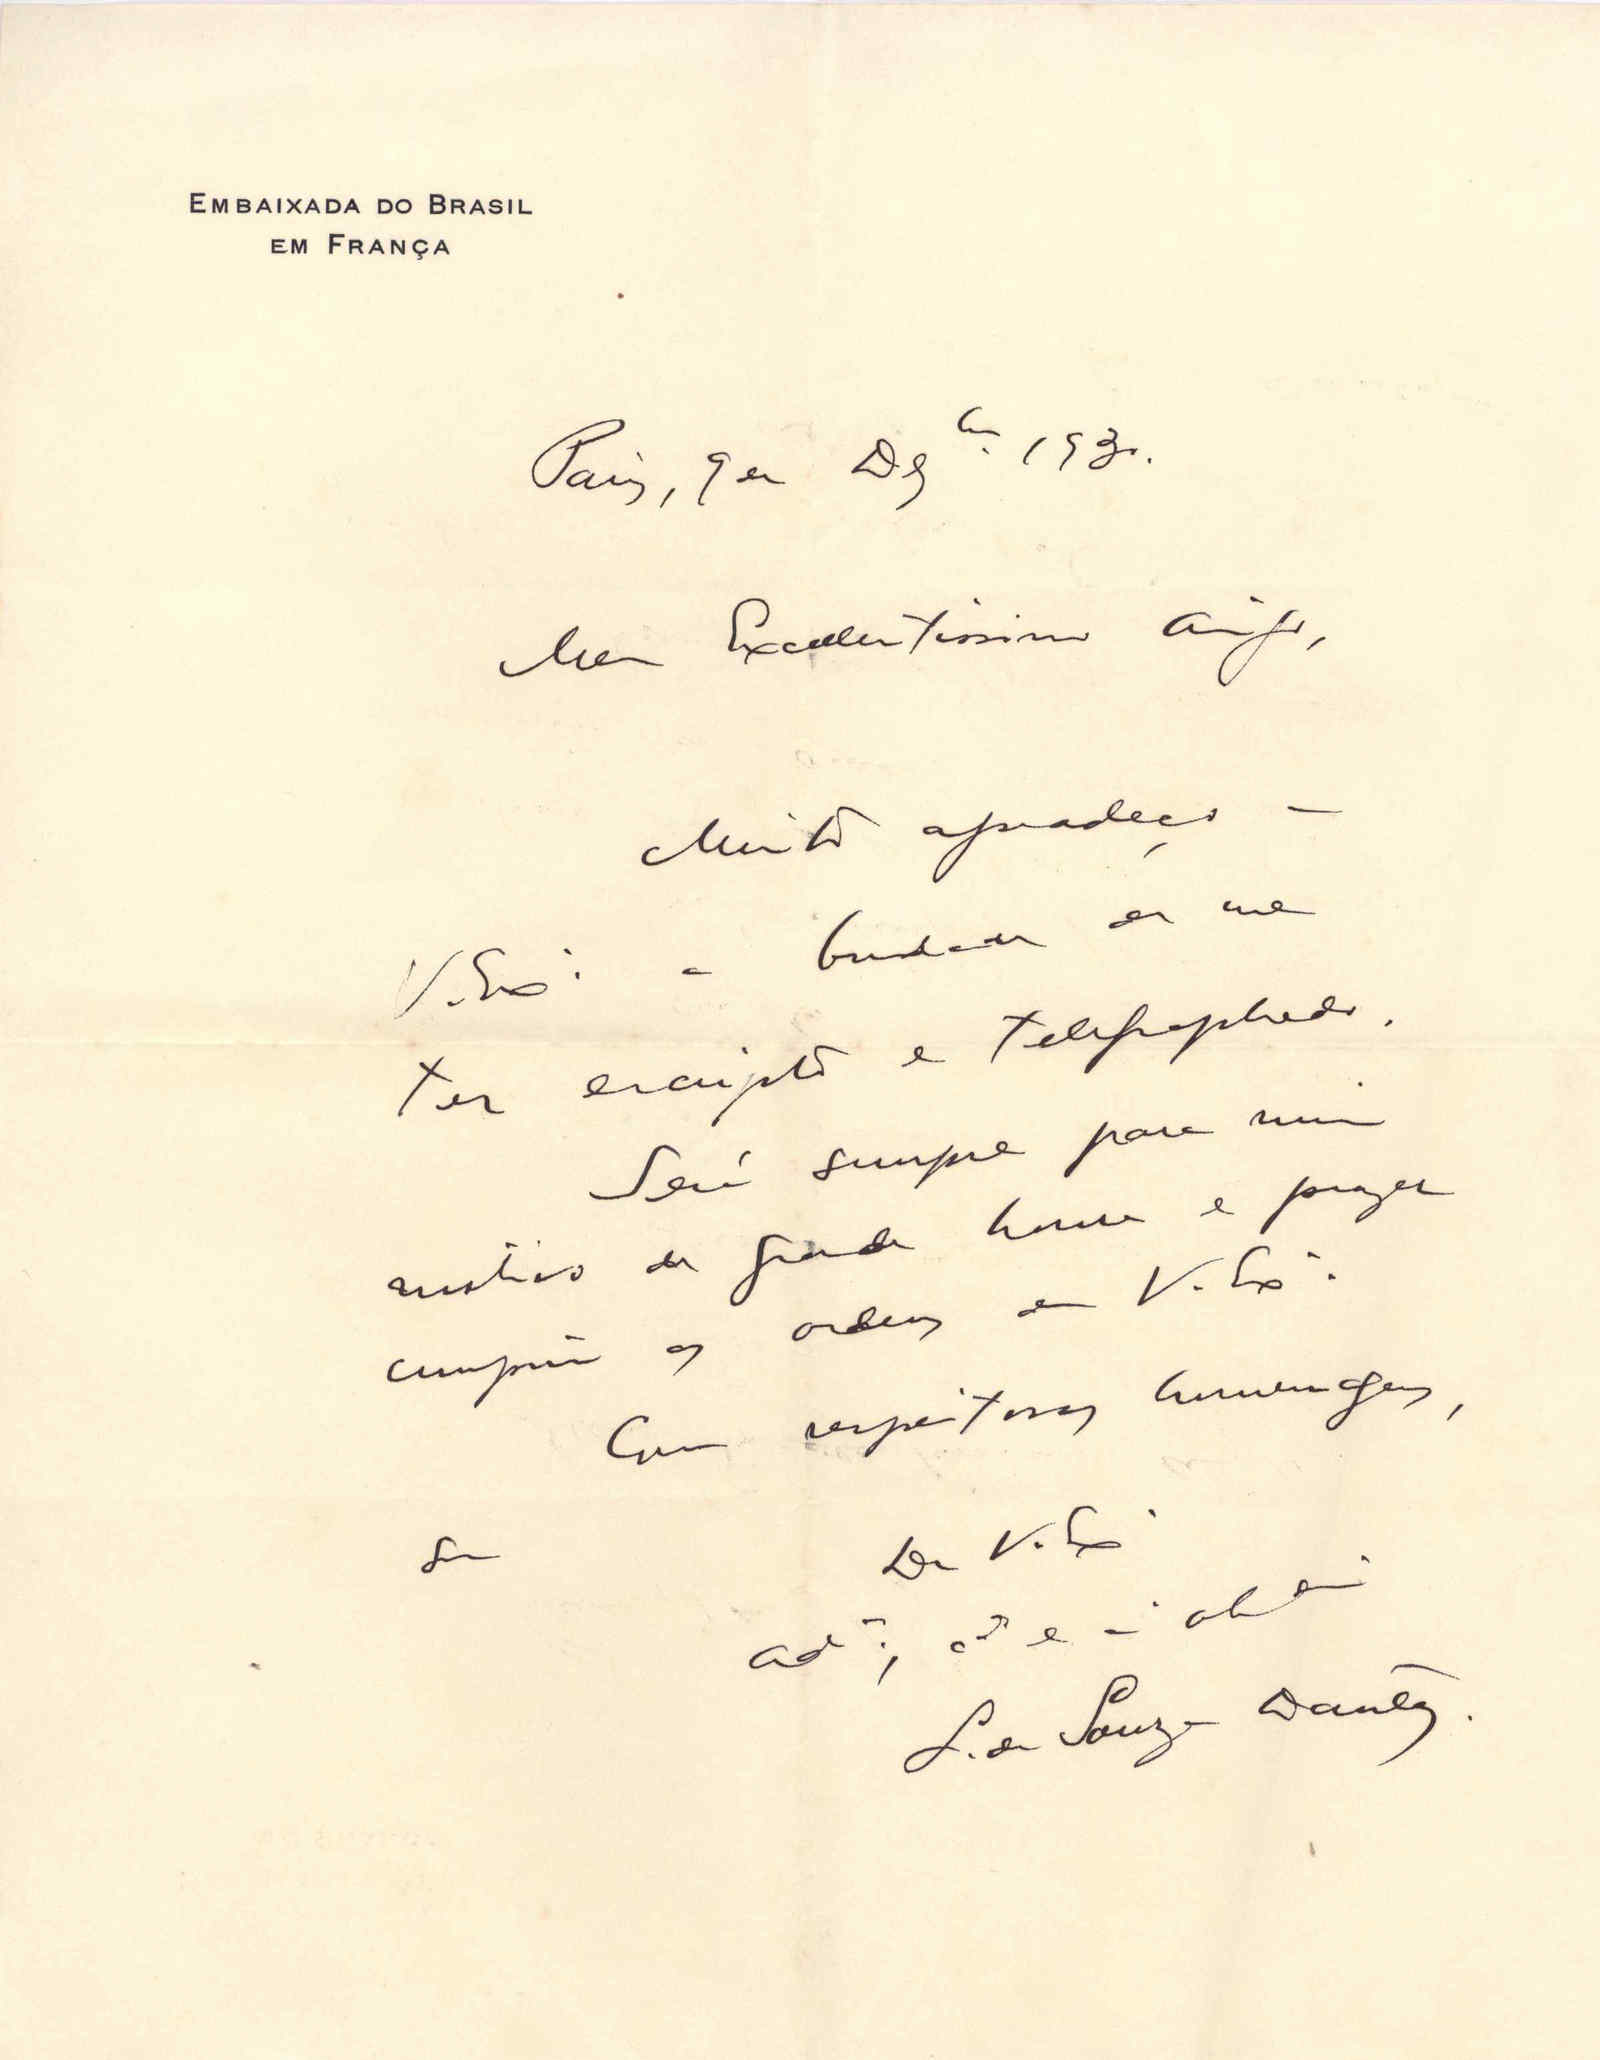 EMBAIXADA DO BRASIL
EM FRANÇA
Paris, 9 de Dezbro. 1930.
Meu Excellentissimo Amigo,
Muito agradeço a
V. Exa. a bondade de me
ter escripto e telegraphado.
Será sempre para mim
motivo de grande honra e prazer
cumprir as ordens de V. Exa.
Com respeitosas homenagens,
Sou
De V. Exa
L. de Souza Dantas.